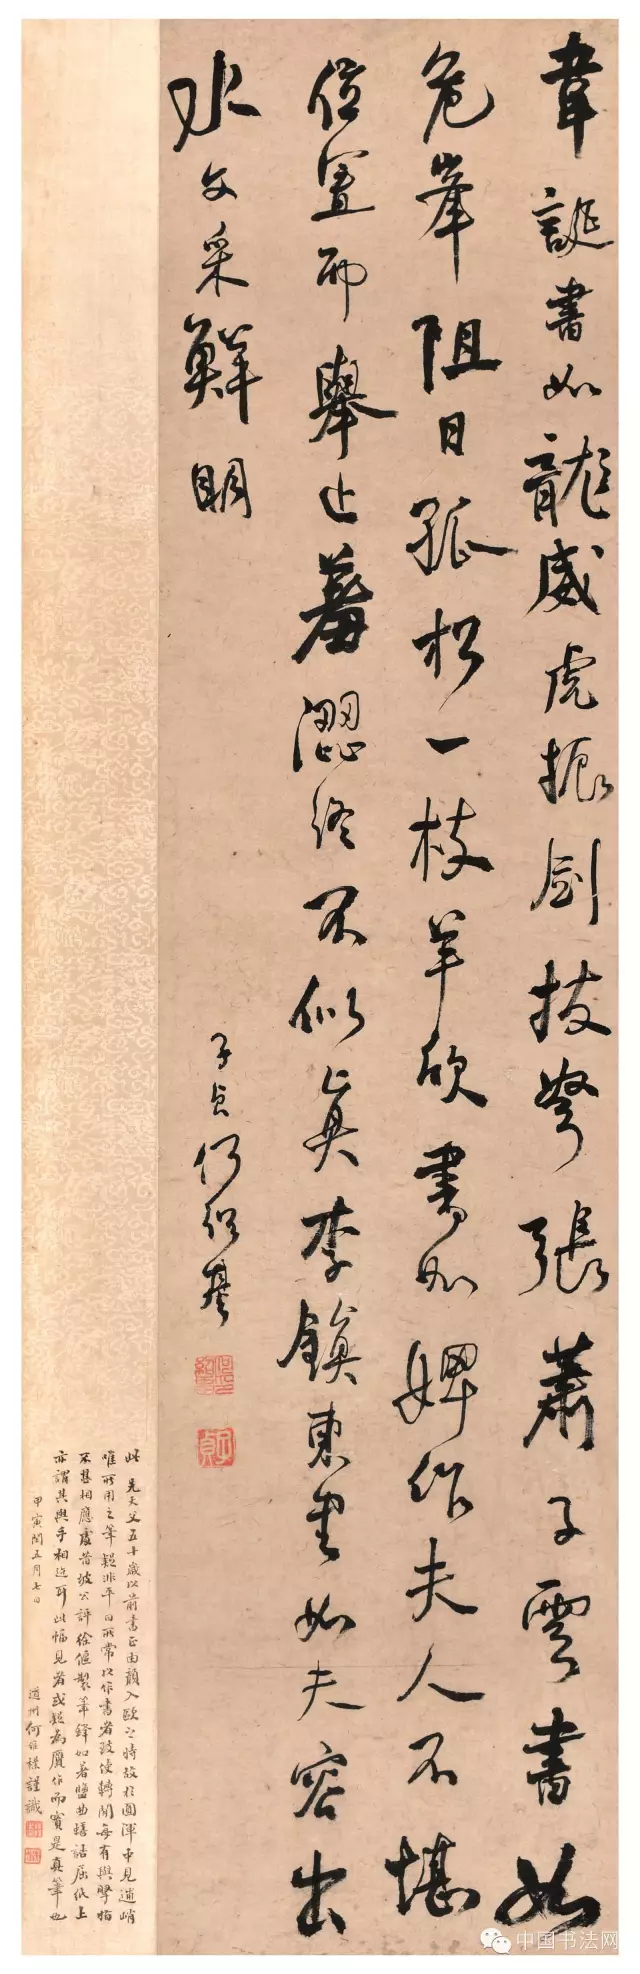 韋誕書如龍威虎振劍拔弩張蕭子雲書如
危峯阻日孤松一枝羊欣書如婢作夫人不堪
位置而舉止羞澀終不似真李鎮東書如夫容出
水文采鮮明
子貞何紹基
此先大父五十歲以前書正由顏入歐之時故於圓渾中見遒峭
唯所用之筆疑非平日所常以作書者致使轉間每有與擘指
不甚相應處昔坡公評徐偃製筆鋒如著鹽曲蟮詰屈紙上
亦謂其與手相迕耳此幅見者或疑為贗作而實是真筆也
甲寅閏五月七日
道州何維樸謹識
中国书法网